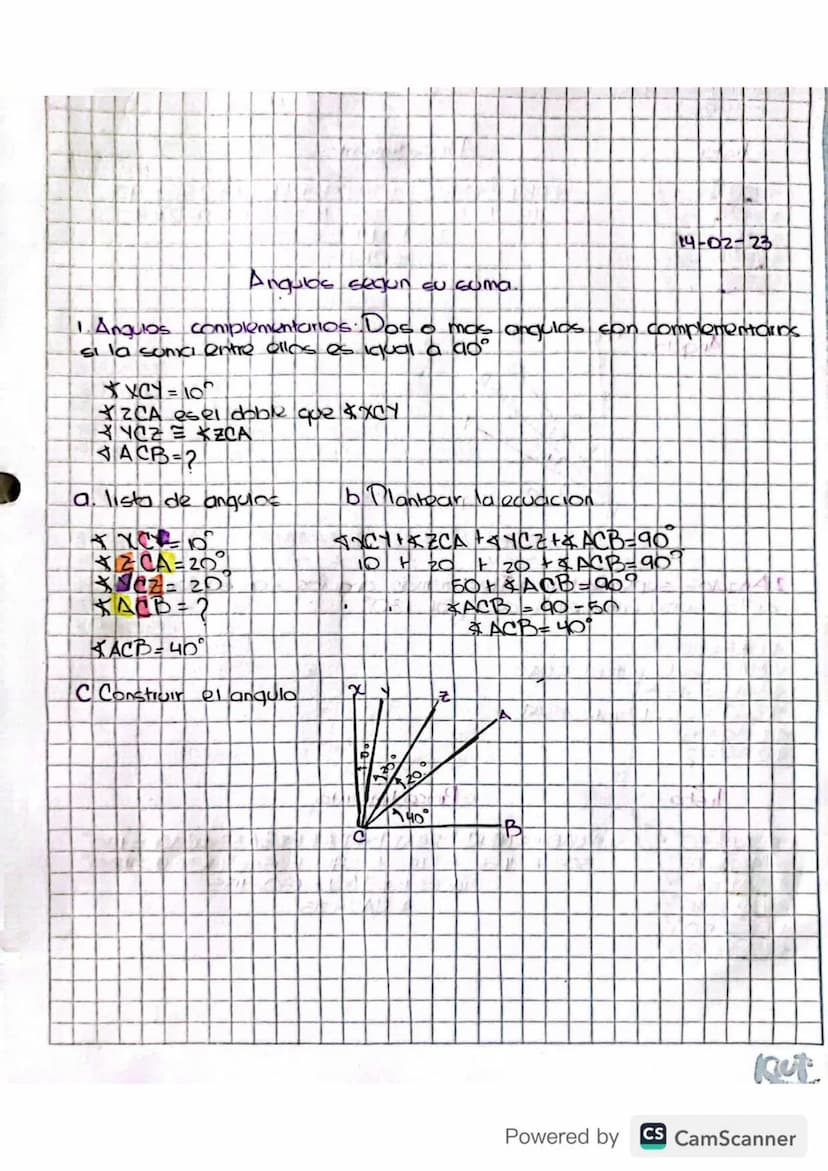 14-02-23
Angulos segun su suma.
1. Anguios complementarios: Dos o mas angulos son complementarios
si la suma entre ellos es igual a 90°
∡ XCY = 10°
∡ ZCA es el doble que ∡XCY
∡ YCZ ≅ ∡ZCA
∡ ACB = ?
a. lista de angulos
b Plantear la ecuacion
∡ XCY = 10°
∡ ZCA = 20°
∡ YCZ = 20°
∡ ACB = ?
∡ACB = 40°
∡XCY + ∡ZCA + ∡YCZ + ∡ ACB = 90°
10 + 20 + 20 + ∡ACB = 90°
50 + ∡ACB = 90°
∡ACB = 90 - 50
∡ ACB = 40°
C Construir el angulo
x y z
A
10° 20° 20°
40°
C B
Kut
Powered by CS CamScanner